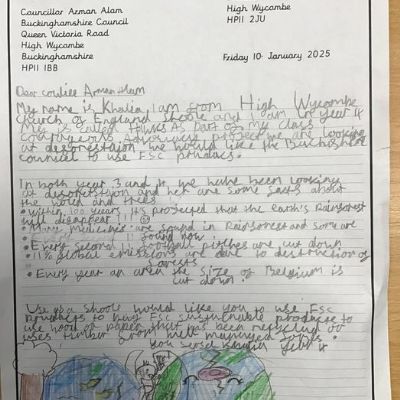 Councillor Arman Alam
Buckinghamshire Council
Queen Victoria Road
High Wycombe
Buckinghamshire
HP11 1BB
High Wycombe
HP11 2JU
Friday 10 January 2025
Dear
My name is Khalia, I am from High Wycombe
Church of England and I am in year 4
My is called Hawks As part of my class
project we are looking
at we would like the
council to use FSC
In both year 3 and 4, we have been looking
at and are some facts about
the world and trees
• Within 100 years its projected that the earth's Rainforest
will disappear!
• Many are found in Rainforest and some are
found now.
• Every second 1 football pitches are cut down
• 11% global emissions are due to destruction of
forests
• Every year an area the size of Belgium is
cut down.
would like you to use FSC
to FSC sustainable products to
use wood or paper that has been recycled or
uses timber from well managed
year 4